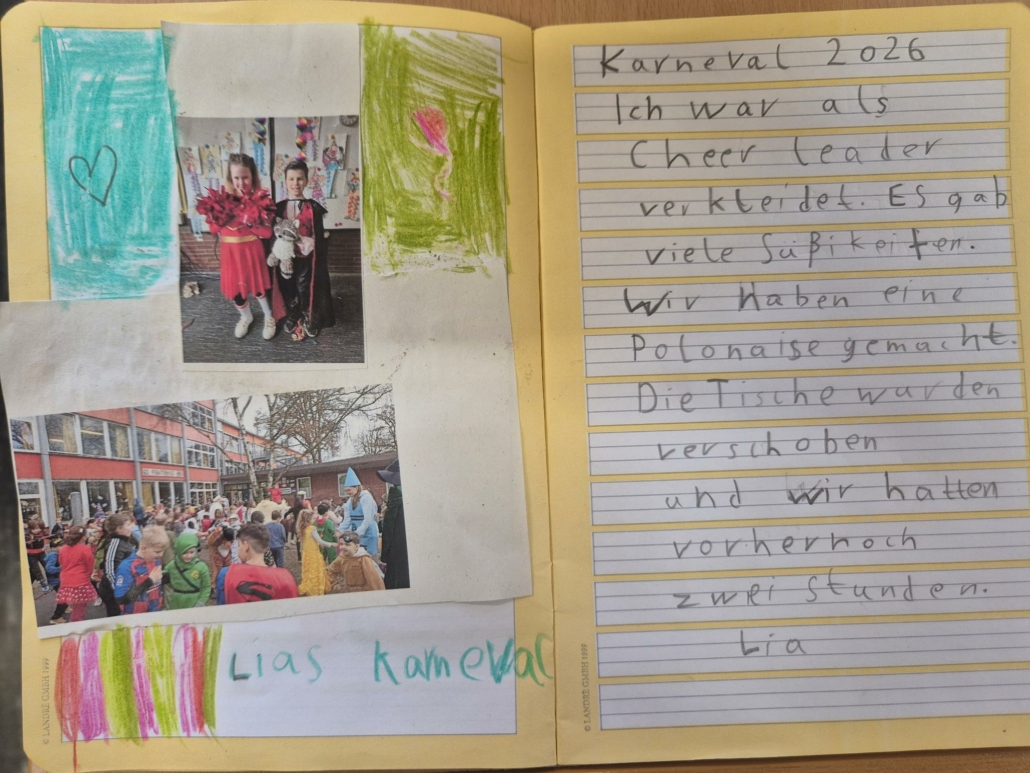 Lias Karneval
© LANDRÉ GMBH 1999
Karneval 2026
Ich war als
Cheer leader
verkleidet. ES gab
viele Süßikeiten.
Wir Haben eine
Polonaise gemacht.
Die Tische wurden
verschoben
und wir hatten
vorher noch
zwei Stunden.
Lia
© LANDRÉ GMBH 1999